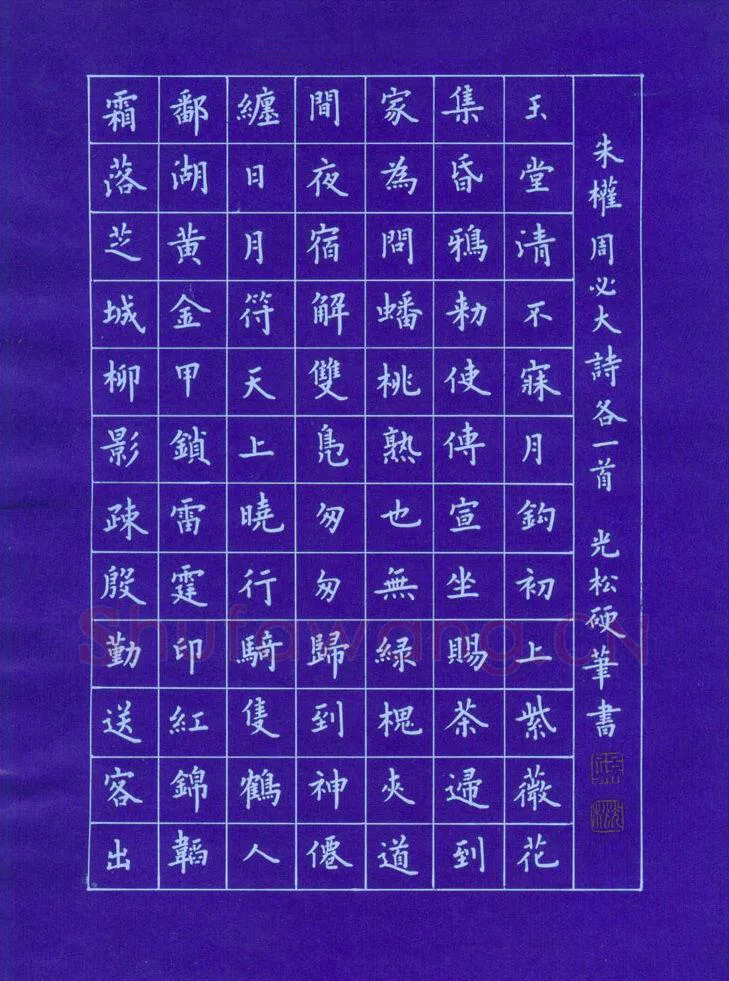 霜落芝城柳影疎殷勤送客出
鄱湖黄金甲鎖雷霆印紅錦韜
纏日月符天上曉行騎隻鶴人
間夜宿解雙鳧匆匆歸到神僊
家為問蟠桃熟也無緑槐夾道
集昏鴉勅使傳宣坐賜茶歸到
玉堂清不寐月鈎初上紫薇花
朱權周必大詩各一首 光松硬筆書
Shufawang.CN